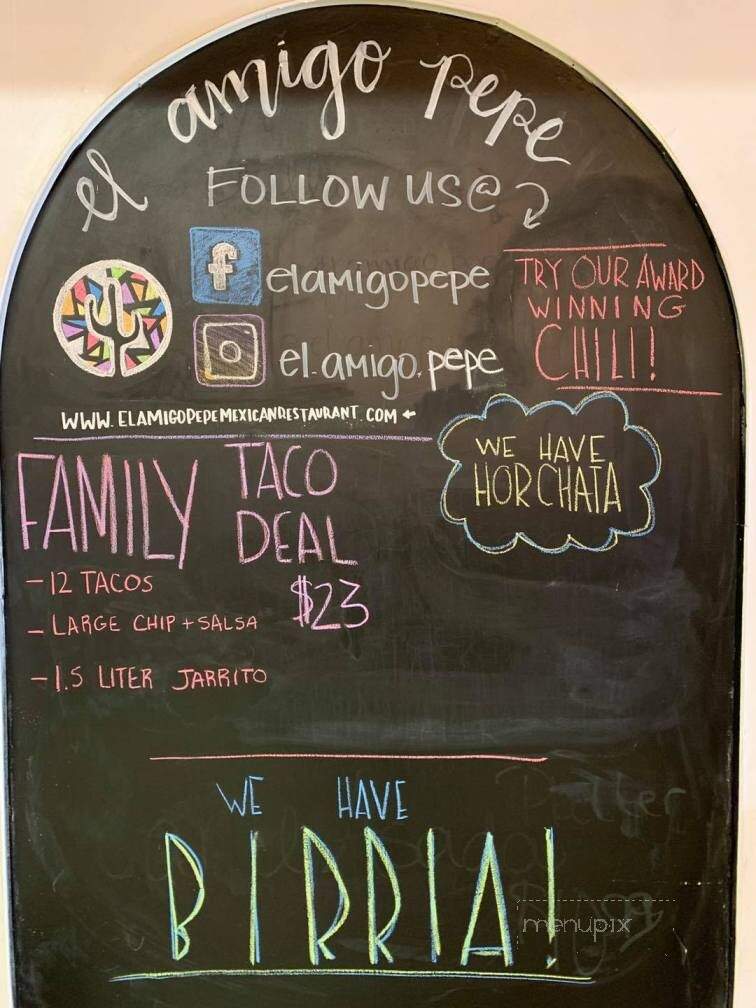 el amigo pepe
FOLLOW US@
f elamigopepe
el.amigo.pepe
TRY OUR AWARD
WINNING
CHILI!
WWW.ELAMIGOPEPEMEXICANRESTAURANT.COM
WE HAVE
HORCHATA
FAMILY TACO
DEAL
$23
-12 TACOS
- LARGE CHIP + SALSA
-1.5 LITER JARRITO
WE HAVE
BIRRIA!
menupix